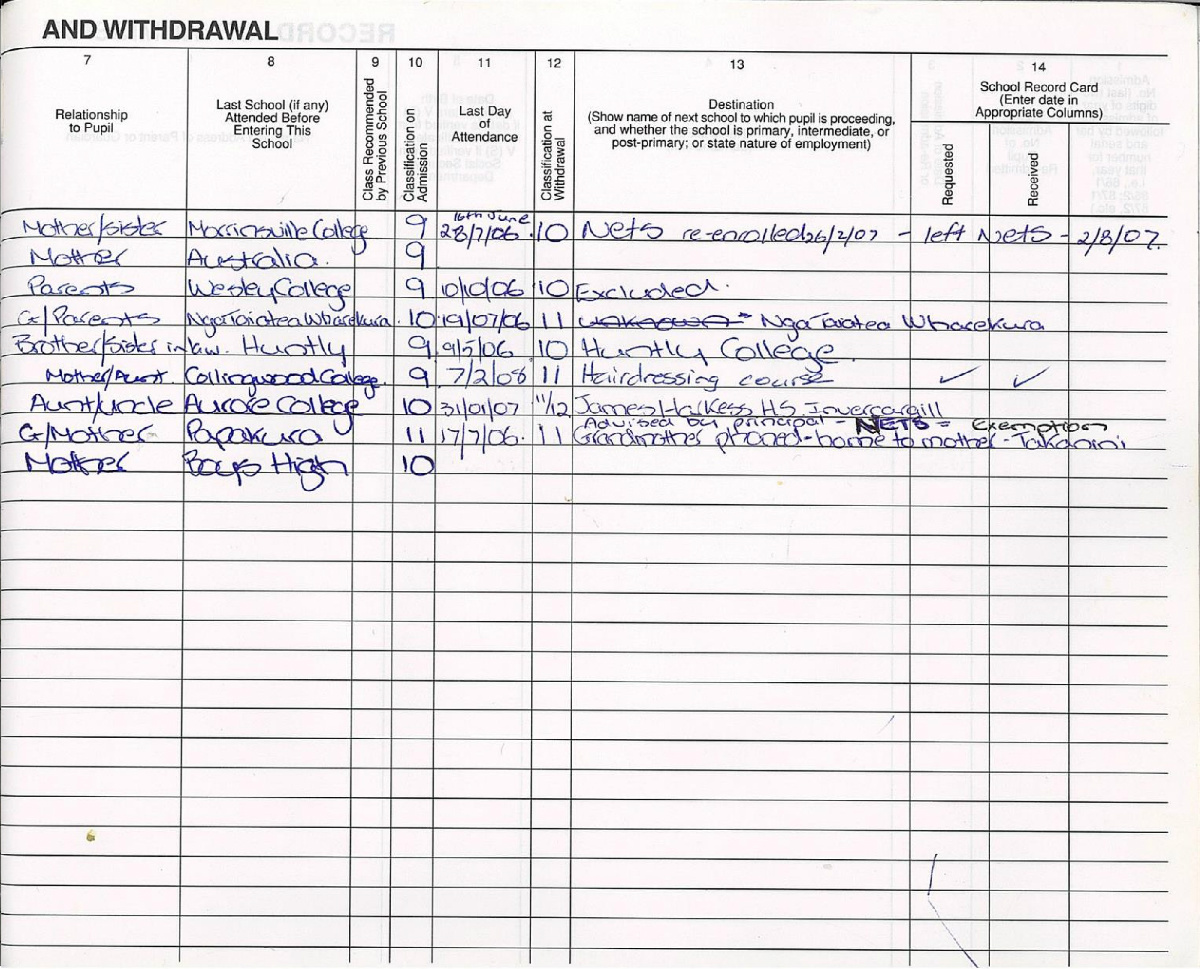 AND WITHDRAWAL
7 8 9 10 11 12 13 14
Relationship to Pupil
Last School (if any) Attended Before Entering This School
Class Recommended by Previous School
Classification on Admission
Last Day of Attendance
Classification at Withdrawal
Destination
(Show name of next school to which pupil is proceeding, and whether the school is primary, intermediate, or post-primary; or state nature of employment)
School Record Card
(Enter date in Appropriate Columns)
Requested
Received
16th June
Mother/Sister Morrinsville College 9 28/7/06 10 Nets re-enrolled 26/2/07 - left Nets - 2/8/07.
Mother Australia. 9
Parents Wesley College 9 10/10/06 10 Excluded.
G/Parents Nga Taiatea Wharekura. 10 19/07/06 11 unknown - Nga Taiatea Wharekura
Brother/Sister in law. Huntly 9 9/5/06 10 Huntly College.
Mother/Aunt. Collingwood College 9 7/2/08 11 Hairdressing course ✓ ✓
Aunt/Uncle Aurore College 10 31/01/07 11/12 James Harkess HS Invercargill
Advised by principal - NETS = Exemption
G/Mother Papakura 11 17/7/06. 11 Grandmother phoned - home to mother - Takanini
Mother Boys High 10